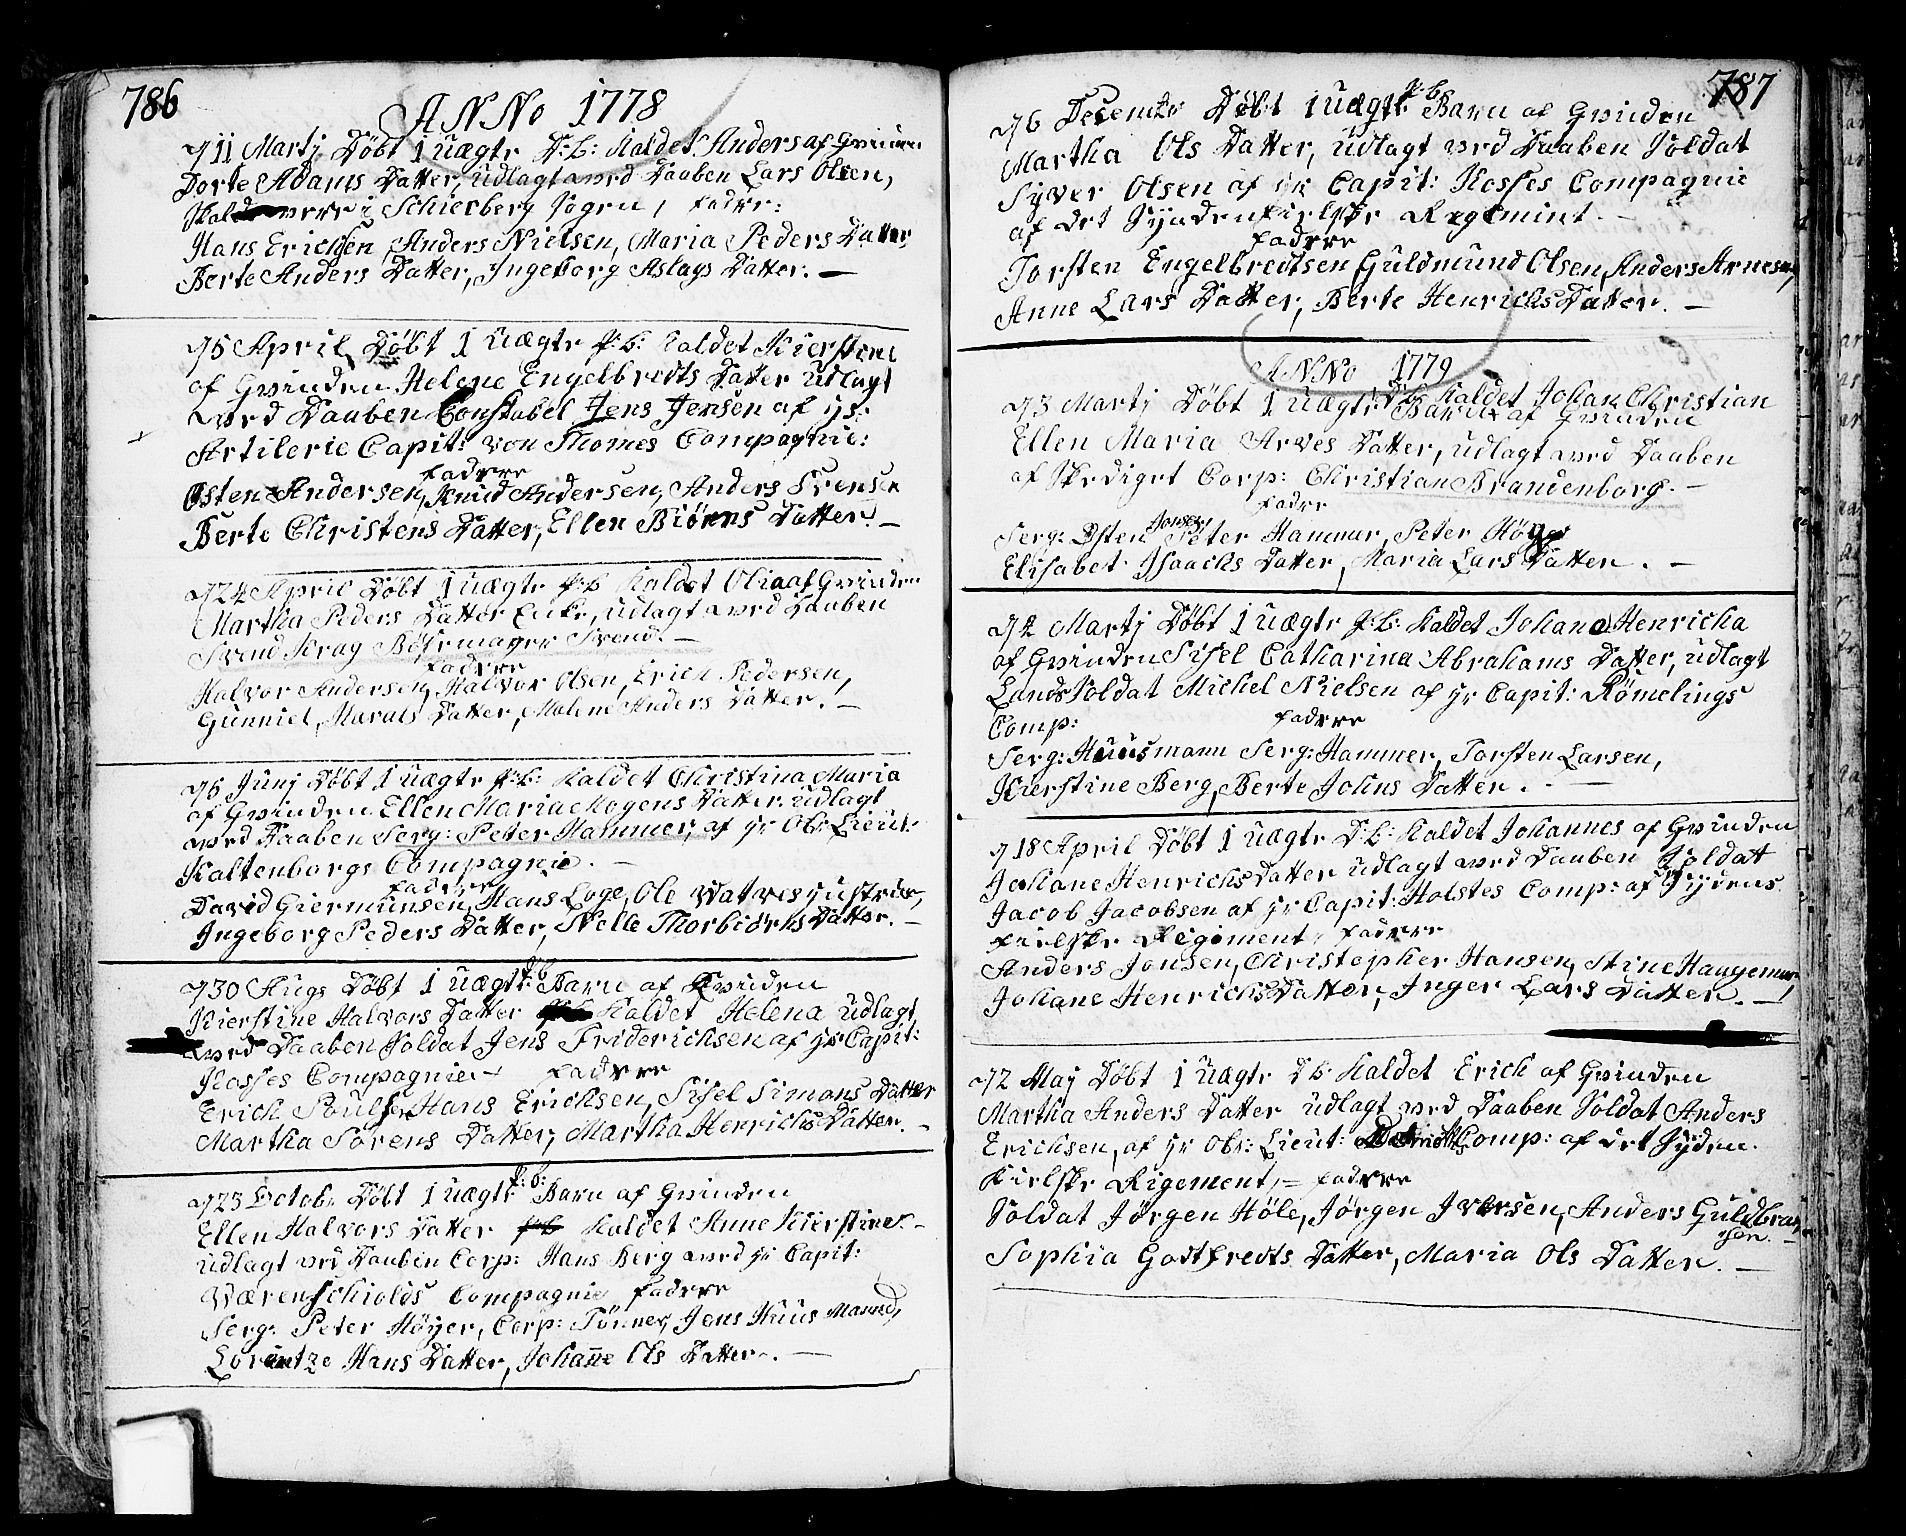 786
ANNo 1778
d 11 Martj Døbt 1 uægte D: b: kaldet Anders af Qvinden
Dorte Adams Datter, udlagt ved Daaben Lars Olsen,
skal være i Schieberg Sogn, fadre:
Hans Erichsen, Anders Nielsen, Maria Peders Datter
Berte Anders Datter, Ingeborg Aslags Datter. —
d 5 April Døbt 1 uægte p: b: kaldet Kierstine
af Qvinden Helene Engelbredts Datter udlagt
ved Daaben Constabel Jens Jensen af
Artilerie Capit: von Thomes Compagnie:
fadrre
Osten Andersen, Knud Andersen, Anders Svensen
Berte Christens Datter, Ellen Biørns Datter. —
d 24 April Døbt 1 uægte p: b kaldet Olia af Qvinden
Martha Peders Datter Enke, udlagt ved Daaben
Svend Krag Bøssemager Svend. —
fadrre
Halvor Andersen, Halvor Olsen, Erich Pedersen,
Gunniel, Datter, Malene Anders Datter. —
d 6 Junj Døbt 1 uægte p: b: kaldet Christina Maria
af Qvinden Ellen Maria Mogens Datter udlagt
ved Daaben Serg: Peter Hammer, af hr Obr: Lieut:
Kaltenborgs Compagnie. —
fadrre
David Giermunsen, Hans Loge, Ole
Ingeborg Peders Datter, Nelle Thorbiørns Datter. —
d 30 Augs Døbt 1 uægte p b Barn af Qvinden
Kierstine Halvors Datter kaldet Helena udlagt
ved Daaben Soldat Jens Friderichsen af hr Capit:
Kosses Compagnie — fadrre
Erich Poulsen Hans Erichsen, Sisel Simons Datter
Martha Sørens Datter, Martha Henrichs Datter. —
d 23 Octobr Døbt 1 uægte p: b: Barn af Qvinden
Ellen Halvors Datter p b kaldet Anne Kierstine. —
udlagt ved Daaben Corp: Hans Berg ved hr Capit:
Værenschiolds Compagnie fadrre
Serg: Peter Høyer, Corp: Tønner, Jens Huus Mand,
Lorentze Hans Datter, Johanne Ols Datter. —
787
d 6 Decembr Døbt 1 uægte p. b. Barn af Qvinden
Martha Ols Datter, udlagt ved Daaben Soldat
Syver Olsen af hr Capit: Kosses Compagnie
af det Syndenfielske Regimint. —
fadrre
Torsten Engelbredtsen Guldmund Olsen, Anders Arnesen,
Anne Lars Datter, Berte Henrichs Datter. —
ANNo 1779
d 3 Martj Døbt 1 uægte D: b kaldet Johan Christian
Barn af Qvinden
Ellen Maria Arves Datter, udlagt ved Daaben
af Skrdiget Corp: Christian Brandenborg. —
fadre
Serg: Østen Jonsen, Peter Hammer, Peter Høyer
Elisabet Isaachs Datter, Maria Lars Datter. —
d 2 Martj Døbt 1 uægte p: b: kaldet Johane Henricka
af Qvinden Sisel Catharina Abrahams Datter, udlagt
Lands Soldat Michel Nielsen af hr Capit: Rømelings
Comp: fadrre
Serg: Huusmann Serg: Hammer, Torsten Larsen,
Kierstine Berg, Berte Johns Datter. —
d 18 April Døbt 1 uægte D: b: kaldet Johannes af Qvinden
Johane Henrichs Datter udlagt ved Daaben Soldat
Jacob Jacobsen af hr Capit: Holstes Comp: af Sydens
fielske Regiment, fadrre
Anders Jonsen, Christopher Hansen, Stine Haugemur,
Johane Henrichs Datter, Inger Lars Datter. —
d 2 Maj Døbt 1 uægte D b: kaldet Erich af Qvinden
Martha Anders Datter udlagt ved Daaben Soldat Anders
Erichsen, af hr Obr: Lieut: Comp: af det Syden.
fielske Rigement, — fadrre
Soldat Jørgen Høle, Jørgen Iversen, Anders Guldbran,
sen. —
Sophia Godtfredts Datter, Maria Ols Datter. —